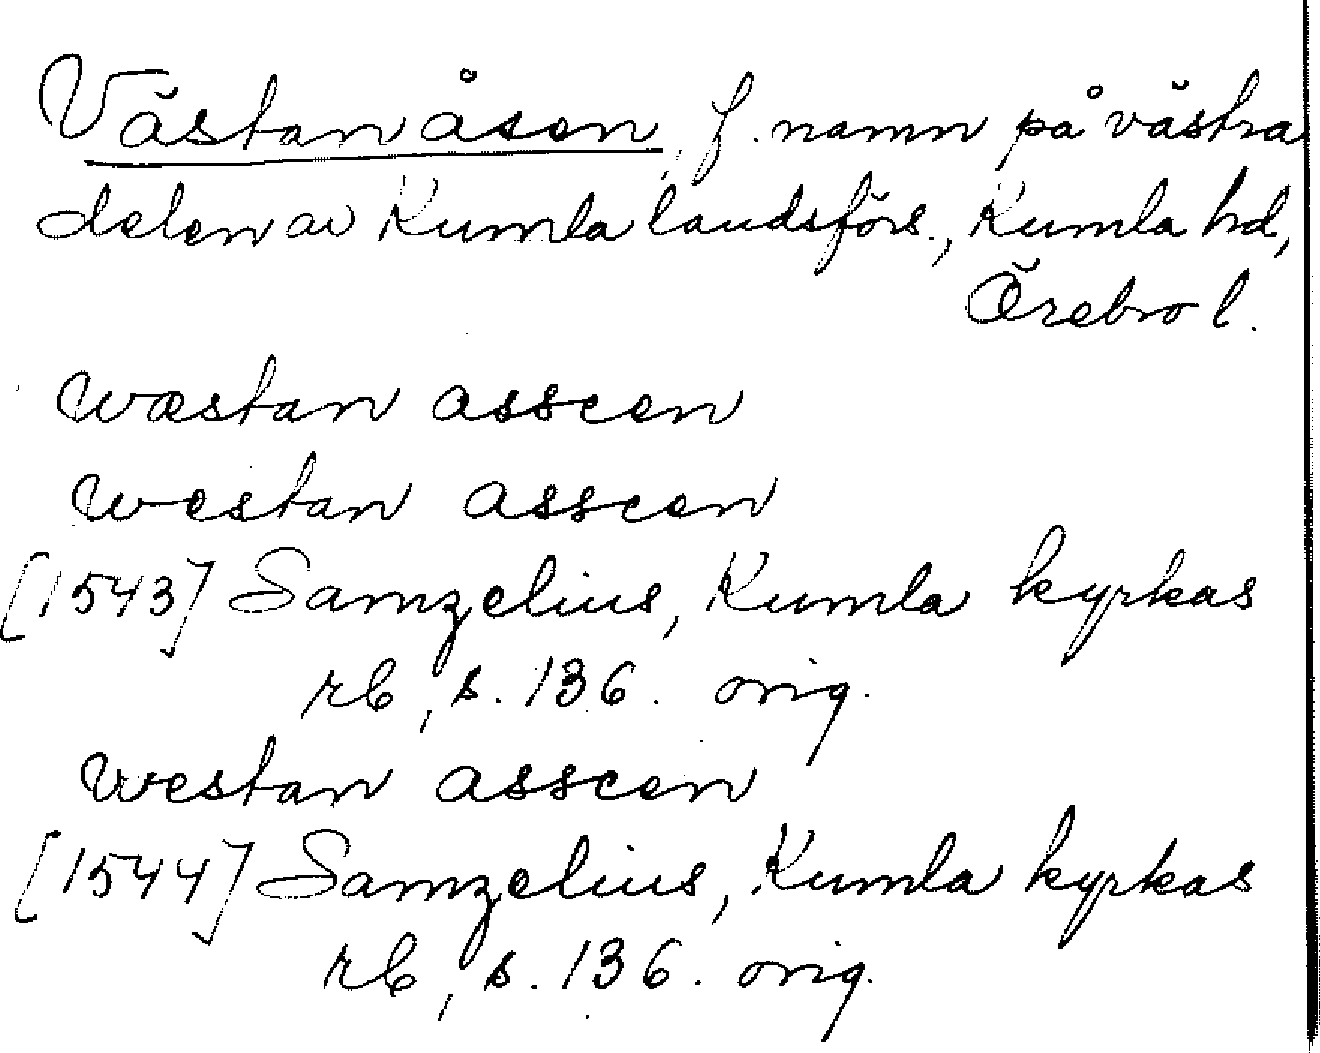 Västanåsen, f. namn på västra
delen av Kumla landsförs., Kumla hd,
Örebro l.
wæstan asseen
westan asseen
[1543] Samzelius, Kumla kyrkas
rb, s. 136. orig.
westan asseen
[1544] Samzelius, Kumla kyrkas
rb, s. 136. orig.